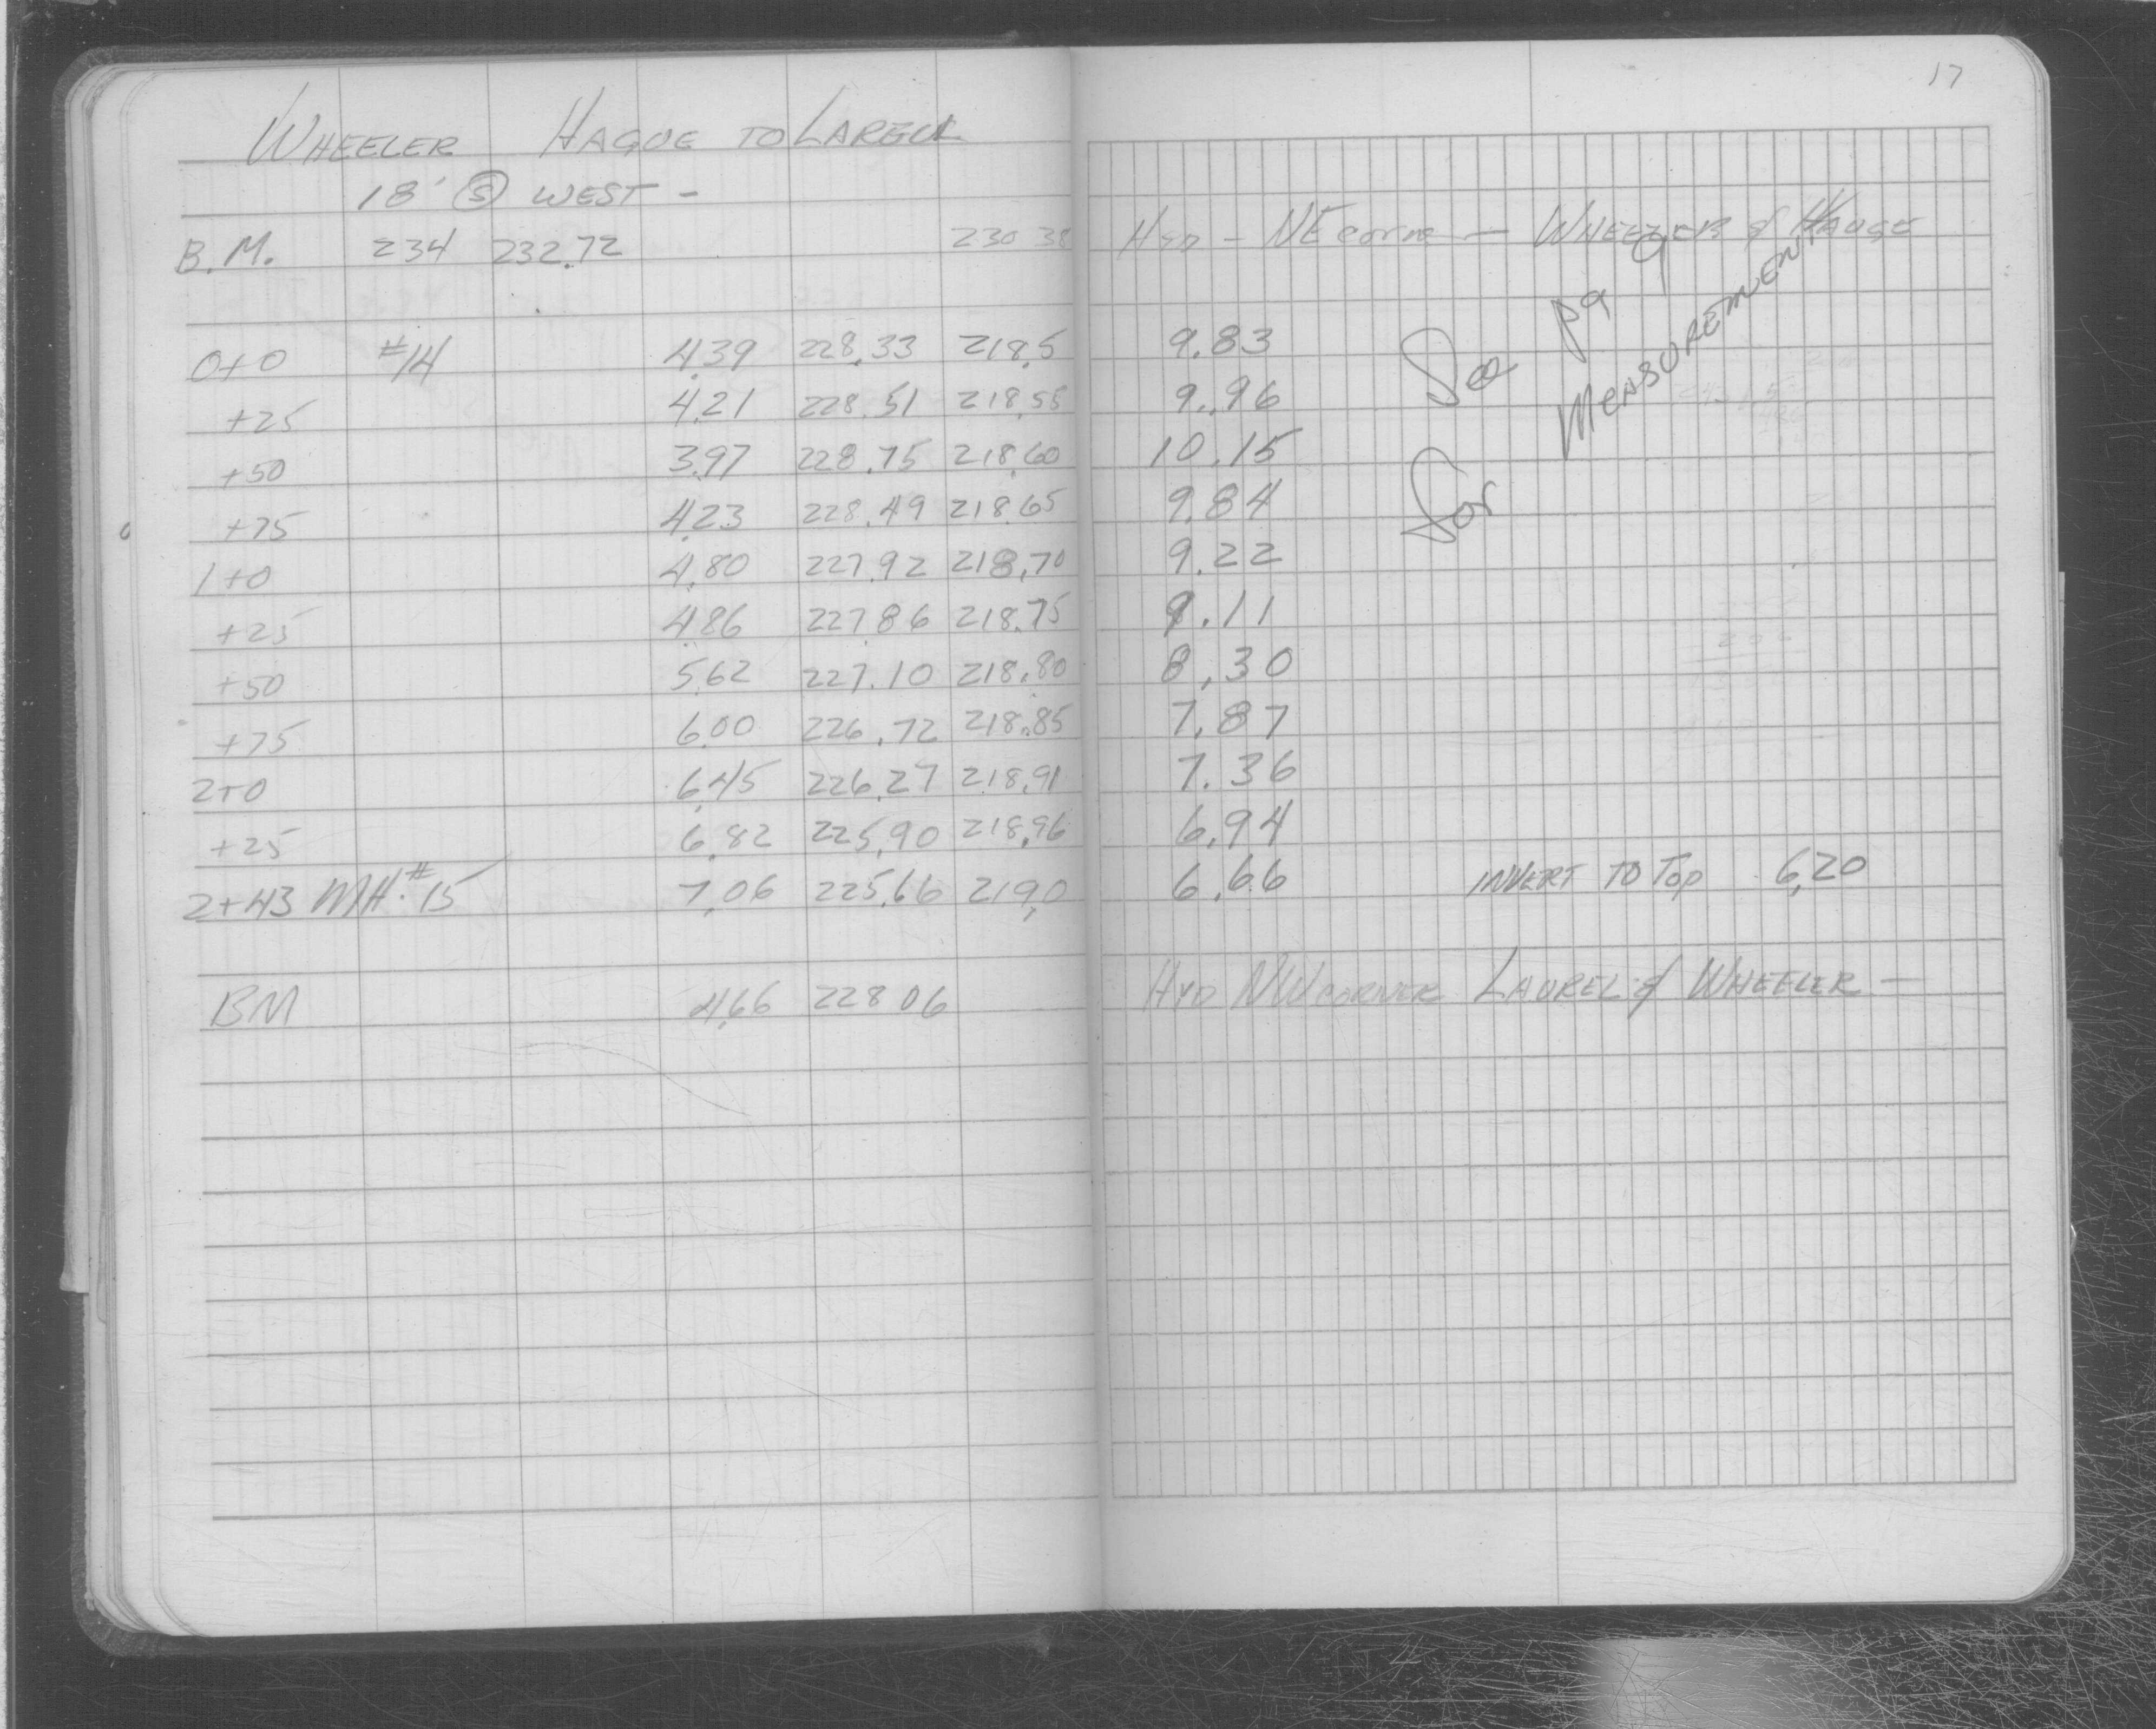 17
WHEELER HAGUE TO LAREUL
18' Ⓢ WEST -
B.M. 234 232.72 230 38 HYD - NE corne - WHEELER & HAUGE
0+0 #14 4.39 228.33 218.5 9.83
+25 4.21 228.51 218.55 9.96
+50 3.97 228.75 218.60 10.15
+75 4.23 228.49 218.65 9.84
1+0 4.80 227.92 218.70 9.22
+25 4.86 227.86 218.75 9.11
+50 5.62 227.10 218.80 8.30
+75 6.00 226.72 218.85 7.87
2+0 6.45 226.27 218.91 7.36
+25 6.82 225.90 218.96 6.94
2+43 MH.#15 7.06 225.66 219.0 6.66 INVERT TO TOP 6.20
BM 4.66 228 06 HYD NW CORNER LAUREL & WHEELER -
See pg 9
for MEASUREMENT